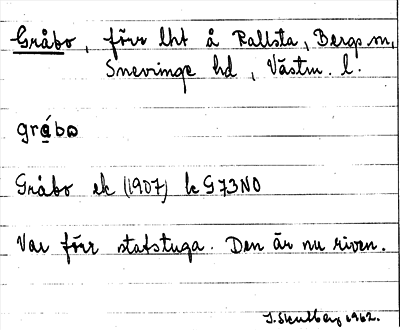 Gråbo, förr lht å Rallsta, Bergs sn,
Snevringe hd, Västm. l.
gråbω
Gråbo ek (1907) bl G73NO
Var förr statstuga. Den är nu riven.
1962.